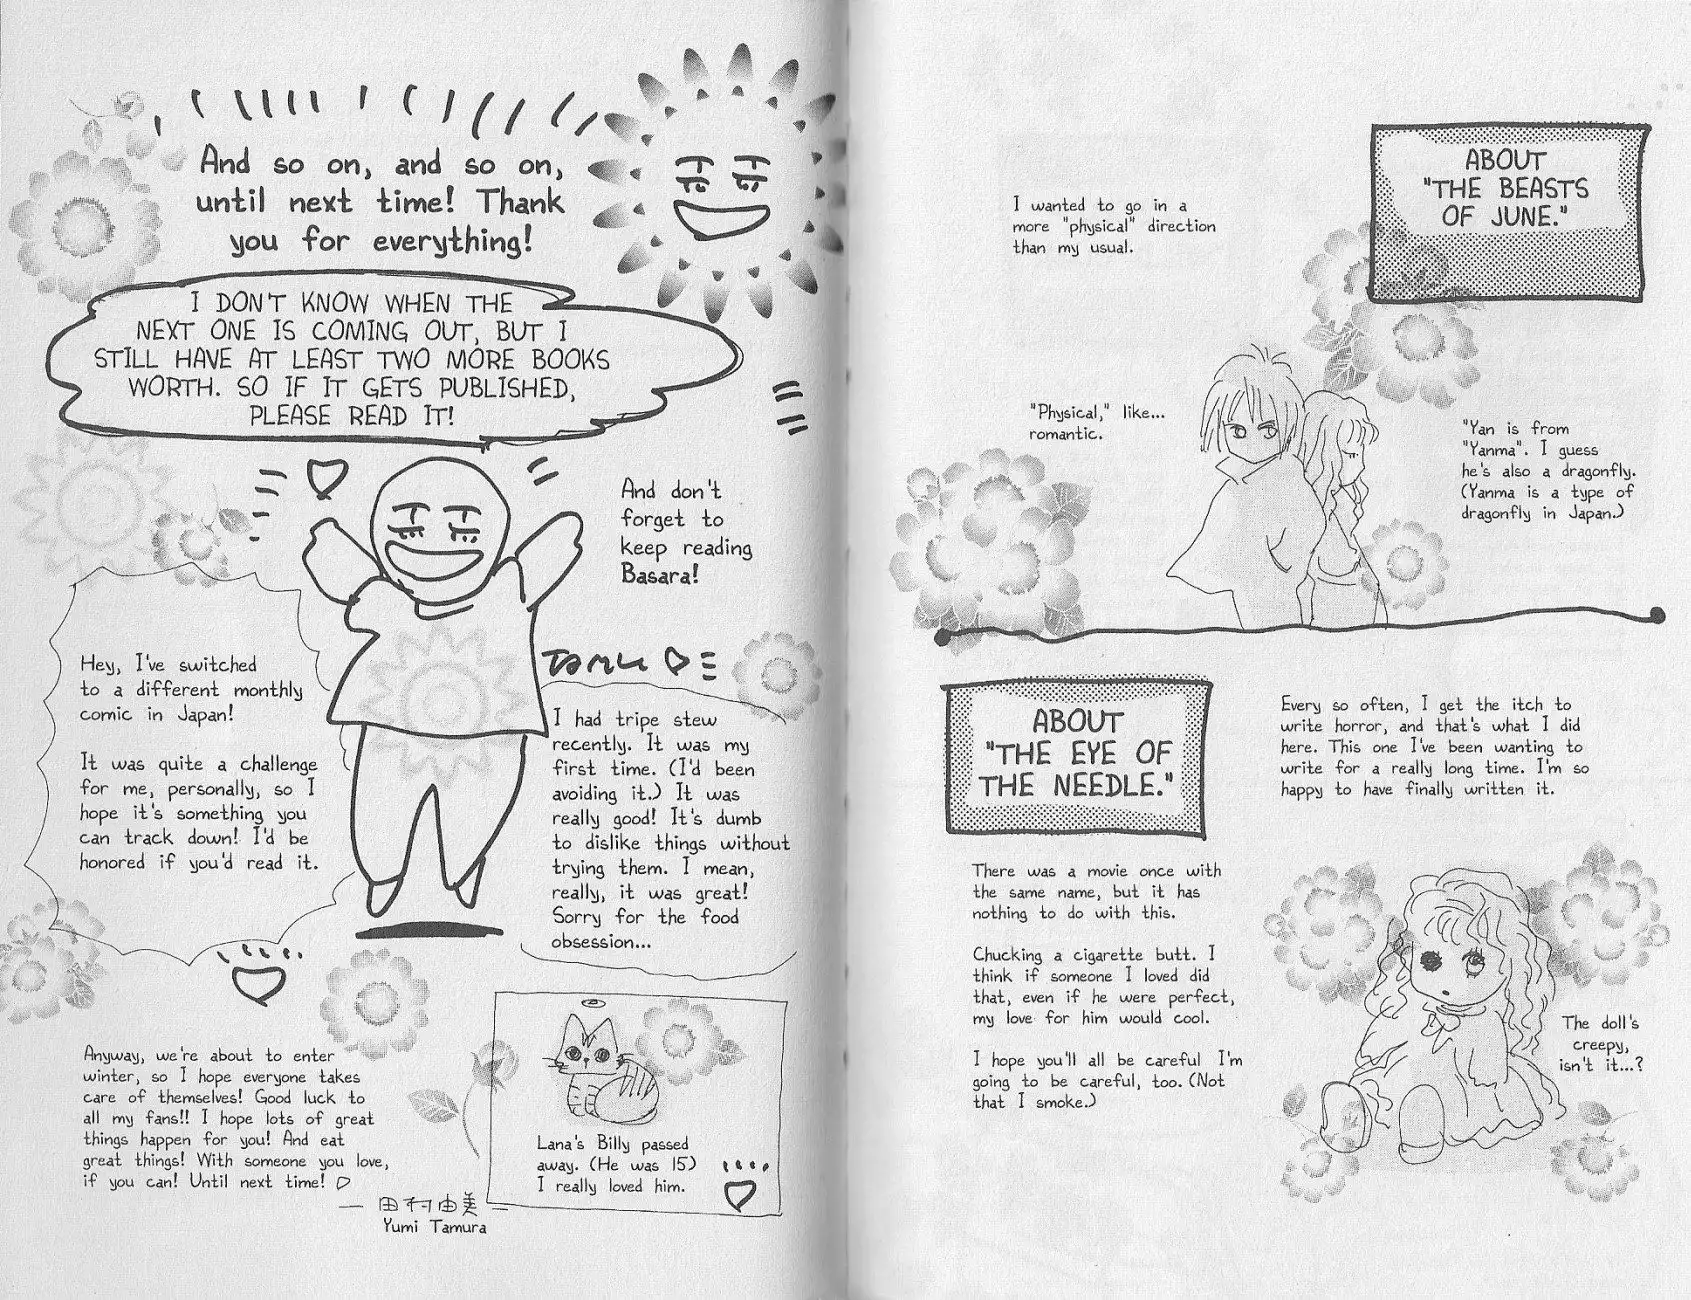 And so on, and so on,
until next time! Thank
you for everything!
I DON'T KNOW WHEN THE
NEXT ONE IS COMING OUT, BUT I
STILL HAVE AT LEAST TWO MORE BOOKS
WORTH. SO IF IT GETS PUBLISHED,
PLEASE READ IT!
And don't
forget to
keep reading
Basara!
TAMU
Hey, I've switched
to a different monthly
comic in Japan!
It was quite a challenge
for me, personally, so I
hope it's something you
can track down! I'd be
honored if you'd read it.
I had tripe stew
recently. It was my
first time. (I'd been
avoiding it.) It was
really good! It's dumb
to dislike things without
trying them. I mean,
really, it was great!
Sorry for the food
obsession...
Anyway, we're about to enter
winter, so I hope everyone takes
care of themselves! Good luck to
all my fans!! I hope lots of great
things happen for you! And eat
great things! With someone you love,
if you can! Until next time! ♡
— 田村由美 —
Yumi Tamura
Lana's Billy passed
away. (He was 15)
I really loved him.
ABOUT
"THE BEASTS
OF JUNE."
I wanted to go in a
more "physical" direction
than my usual.
"Physical," like...
romantic.
"Yan is from
"Yanma". I guess
he's also a dragonfly.
(Yanma is a type of
dragonfly in Japan.)
ABOUT
"THE EYE OF
THE NEEDLE."
Every so often, I get the itch to
write horror, and that's what I did
here. This one I've been wanting to
write for a really long time. I'm so
happy to have finally written it.
There was a movie once with
the same name, but it has
nothing to do with this.
Chucking a cigarette butt. I
think if someone I loved did
that, even if he were perfect,
my love for him would cool.
I hope you'll all be careful I'm
going to be careful, too. (Not
that I smoke.)
The doll's
creepy,
isn't it...?